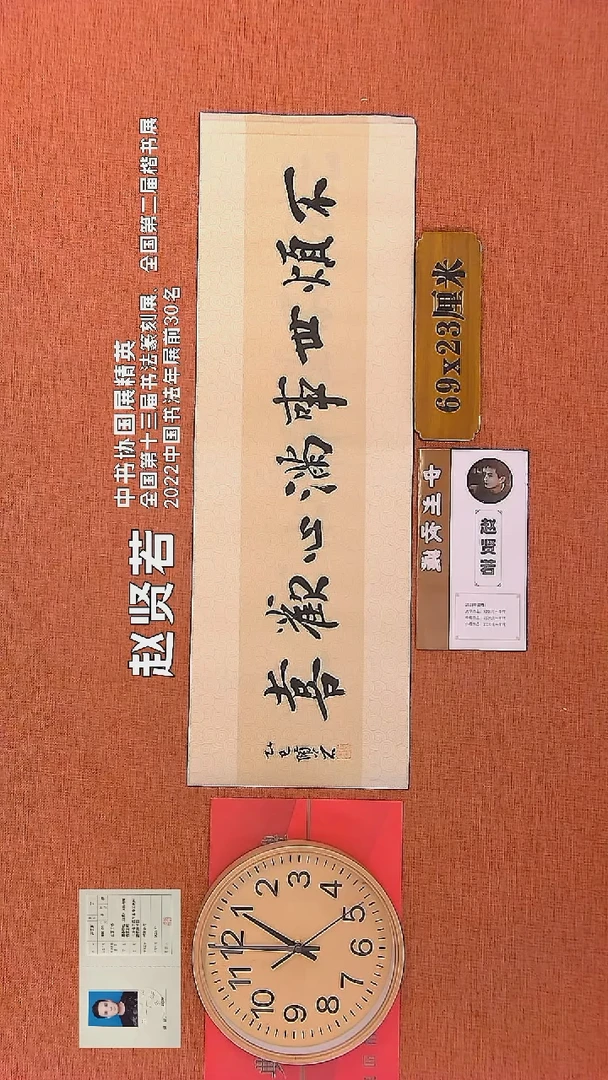 赵贤若
中书协国展精英
全国第十三届书法篆刻展、全国第二届楷书展
2022中国书法年展前30名
不煩世事滿心歡喜
69x23厘米
12
1
2
3
4
5
6
7
8
9
10
11